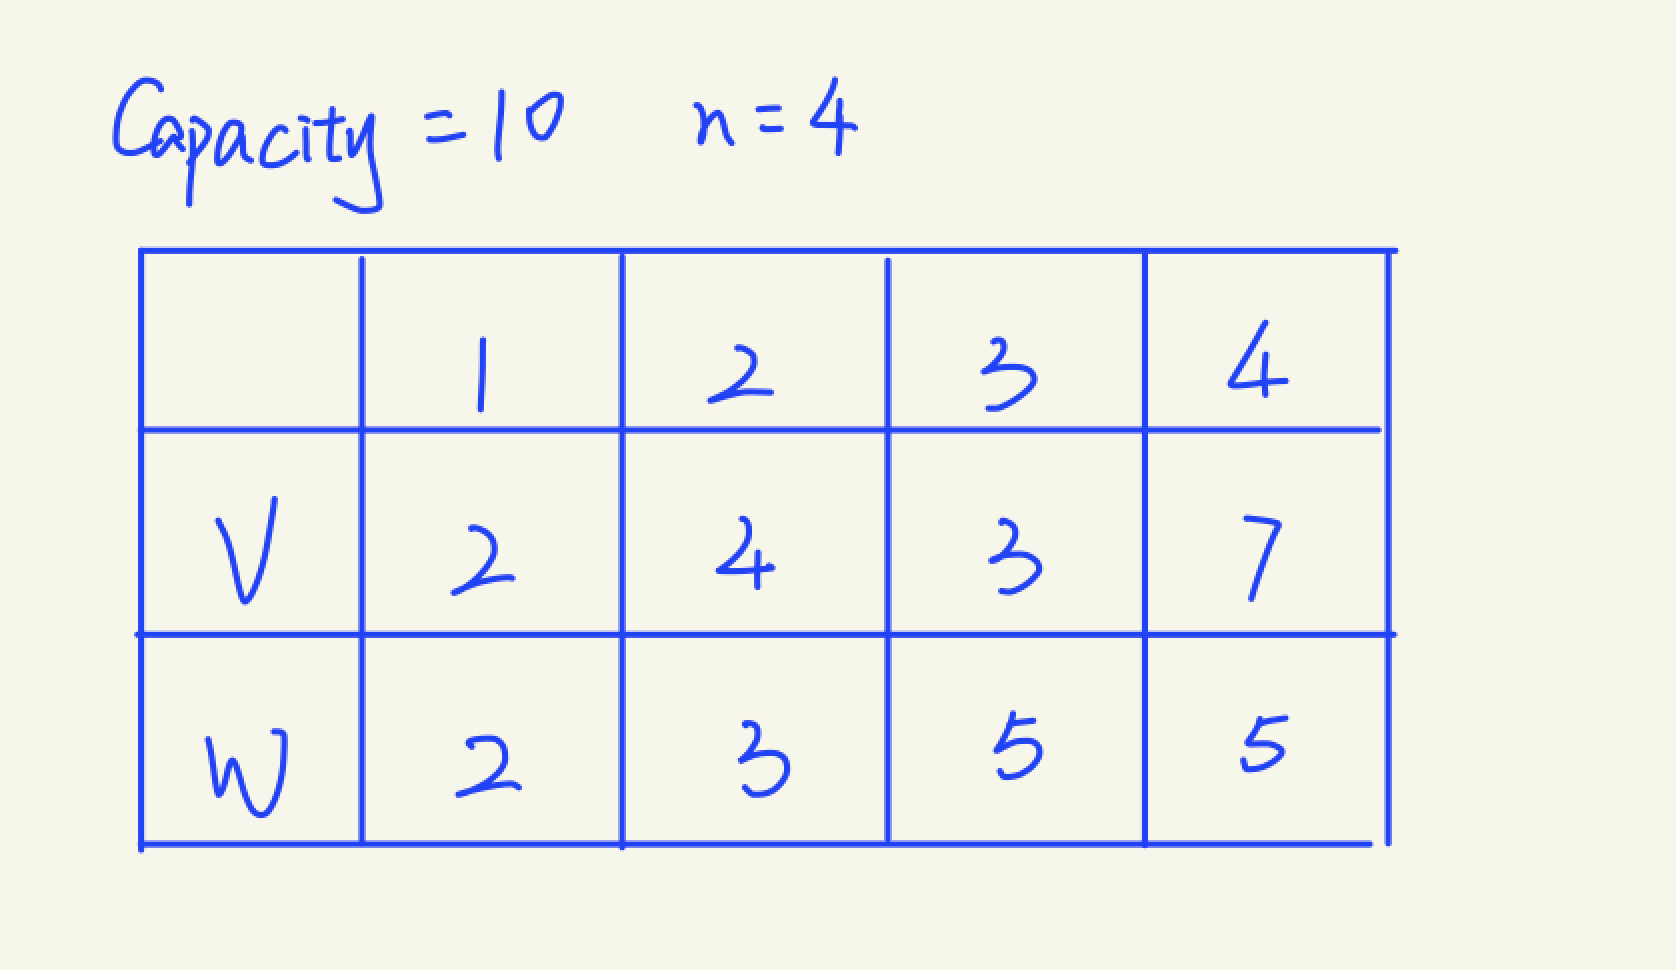 Capacity = 10 n = 4
1 2 3 4
V 2 4 3 7
W 2 3 5 5